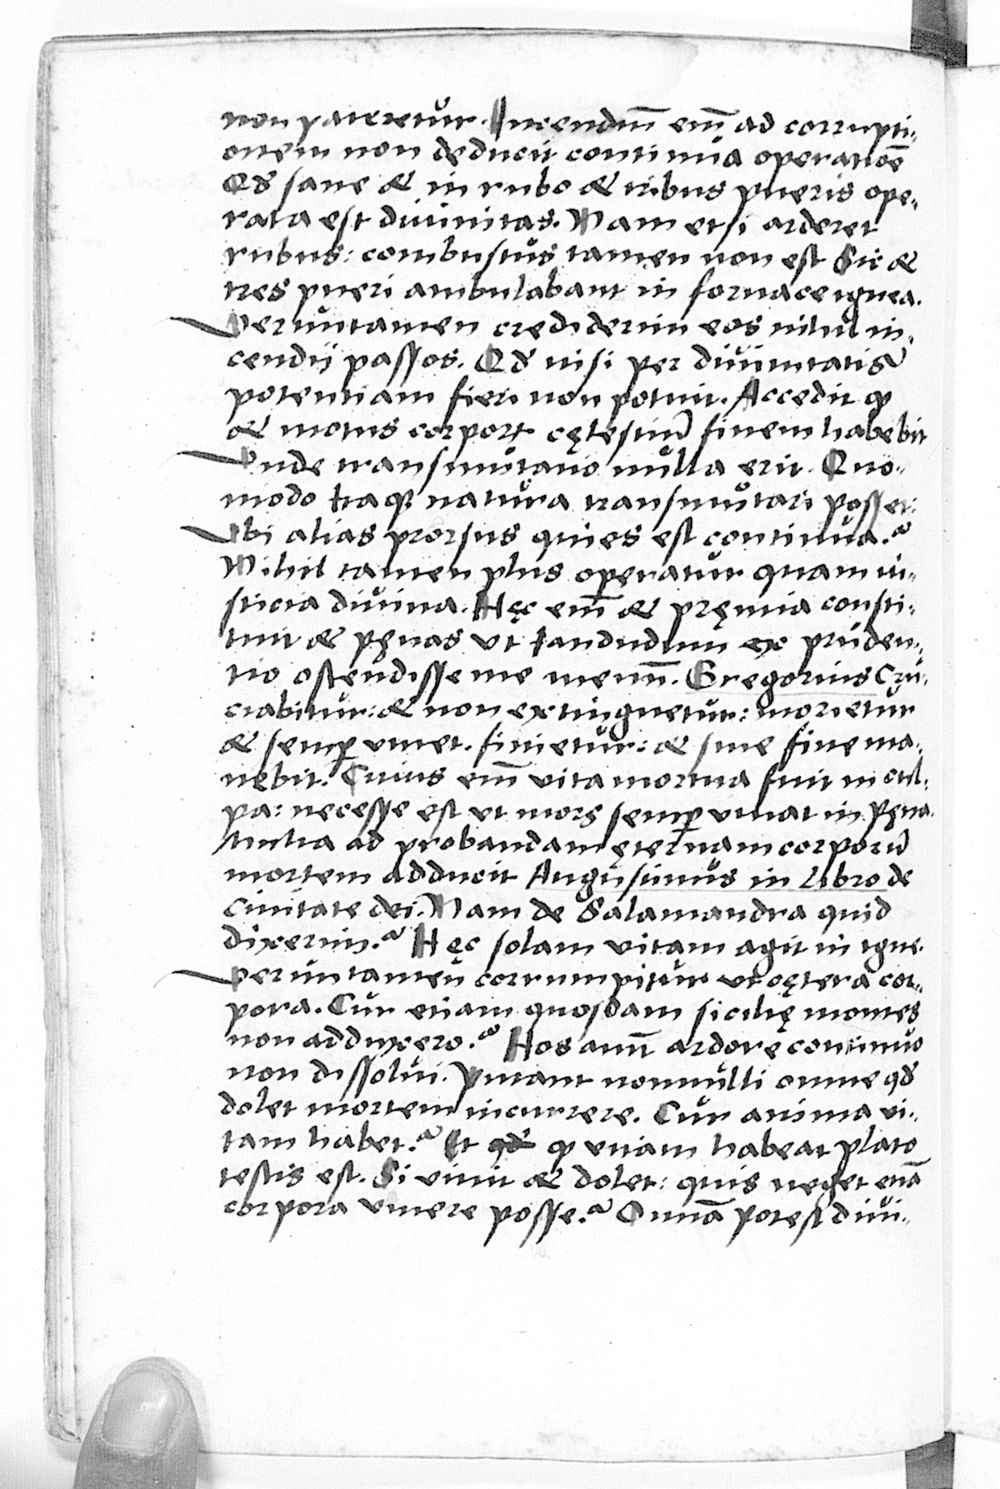 non pateretur. Incendiū em̄ ad corrupti-
onem non deducit continua operatiōē
Qđ sane & in rubo & tribus pueris ope-
rata est diuinitas. Nam etsi arderet
rubus: combustus tamen non est Sic &
tres pueri ambulabant in fornace ignea.
Veruntamen crediderim eos nihil in-
cendij passos. Qđ nisi per diuinitatis
potentiam fieri non potuit. Accedit ꝙ
& motus corporꝝ cęlestiū finem habebit
Vnde transmutatio nulla erit. Quo-
modo itaqꝫ natura transmutari posset:
Vbi alias prorsus quies est continua?
Nihil tamen plus operatur quam iu-
sticia diuina. Hęc em̄ & pręmia consti-
tuit & pęnas vt iandudum ex pruden-
tio ostendisse me memini. Gregorius Cru-
ciabitur: & non extinguetur: morietur
& semꝑ viuet. finietur: & sine fine ma-
nebit. Cuius em̄ vita mortua fuit in cul-
pa: necesse est vt mors semꝑ viuat in pęna.
Multa ad probandam ęternam corporū
mortem adducit Augustinus in libro de
Ciuitate dei. Nam de Salamandra quid
dixerim? Hęc solam vitam agit in igne.
Veruntamen corrumpitur vt cętera cor-
pora. Cur etiam quosdam sicilię montes
non adduxero? Hos aūt ardore continuo
non dissolui. Putant nonnulli omne qđ
dolet mortem incurrere. Cur anima vi-
tam habet? Et ꝙ vitam habeat plato
testis est. Si viuit & dolet: quis neget etiā
corpora viuere posse? Omnia potest diui-